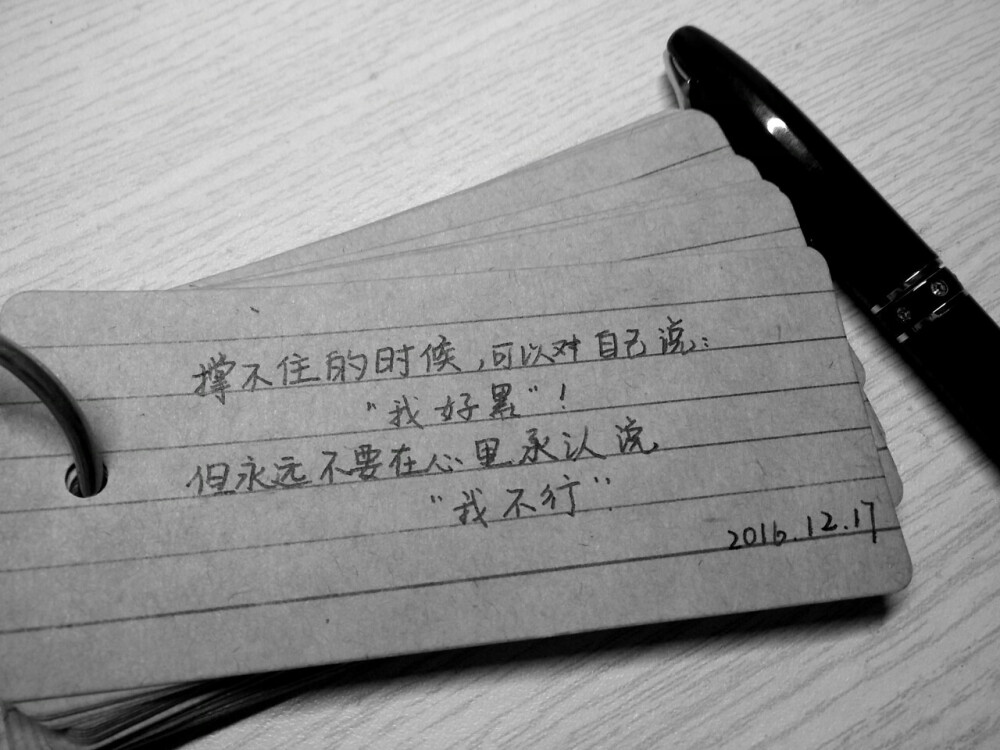 撑不住的时候,可以对自己说:
"我好累"!
但永远不要在心里承认说,
"我不行".
2016.12.17